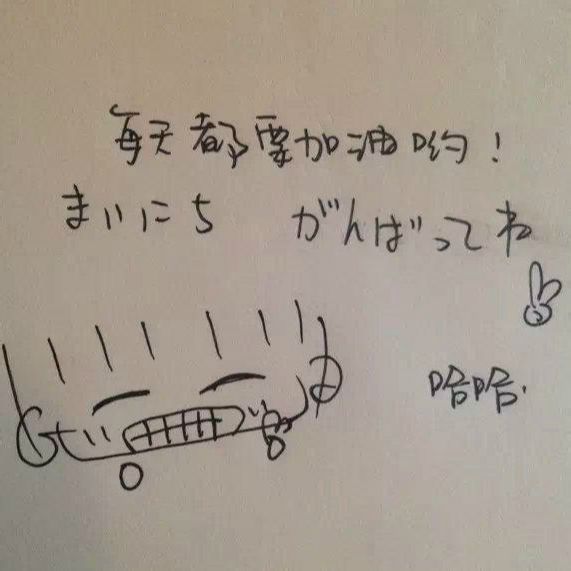 每天都要加油哟！
まいにち がんばってね
哈哈.